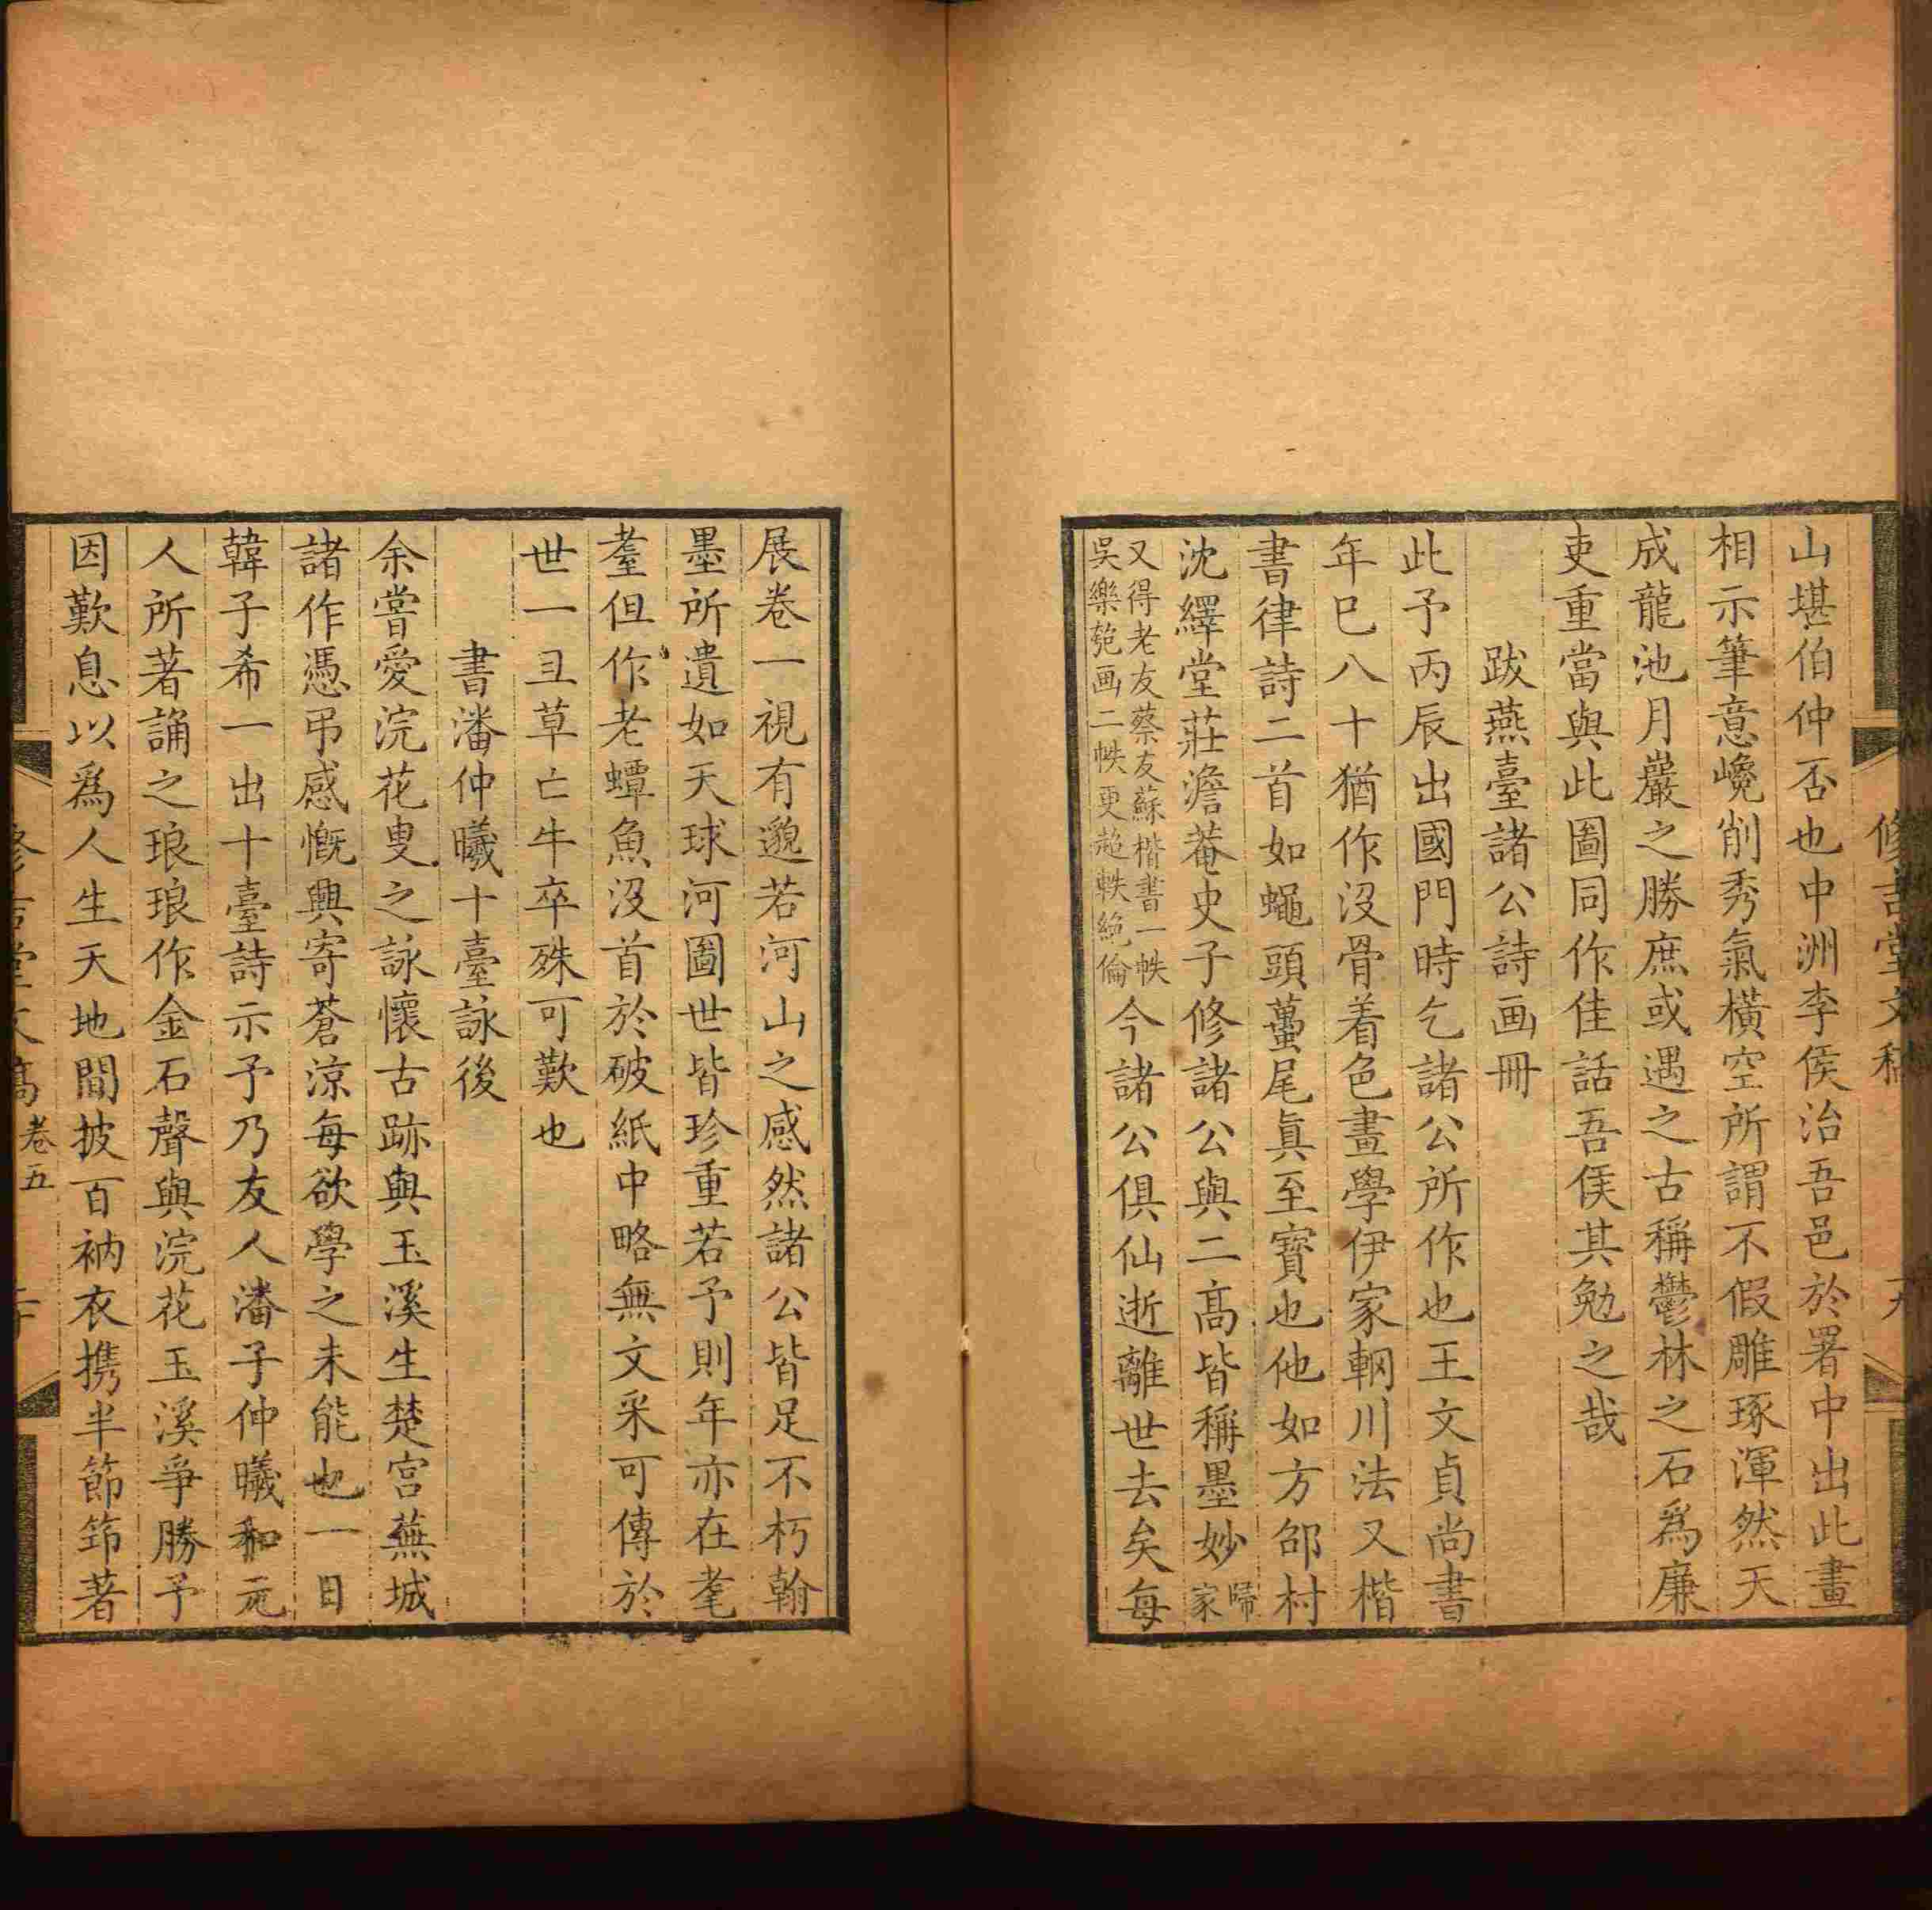 山堪伯仲否也中洲李侯治吾邑於署中出此畫
相示筆意巉削秀氣橫空所謂不假雕琢渾然天
成龍池月巖之勝庶或遇之古稱鬱林之石爲廉
吏重當與此圖同作佳話吾侯其勉之哉
跋燕臺諸公詩画冊
此予丙辰出國門時乞諸公所作也王文貞尚書
年巳八十猶作沒骨着色畫學伊家輞川法又楷
書律詩二首如蠅頭蠆尾眞至寳也他如方邵村
沈繹堂莊澹菴史子修諸公與二高皆稱墨妙歸家
又得老友蔡友蘇楷書一帙
吳樂匏画二帙更超軼絶倫
今諸公俱仙逝離世去矣每
展卷一視有邈若河山之感然諸公皆足不朽翰
墨所遺如天球河圖世皆珍重若予則年亦在耄
耋但作老蟫魚沒首於破紙中略無文采可傳於
世一旦草亡牛卒殊可歎也
書潘仲曦十臺詠後
余嘗愛浣花叟之詠懷古跡與玉溪生楚宮蕪城
諸作憑弔感慨興寄蒼涼每欲學之未能也一日
韓子希一出十臺詩示予乃友人潘子仲曦和元
人所著誦之琅琅作金石聲與浣花玉溪爭勝予
因歎息以爲人生天地間披百衲衣携半節笻著
卷五